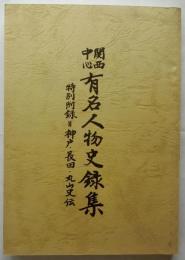 関西中心
有名人物史録集
特別附録=神戸長田丸山史伝